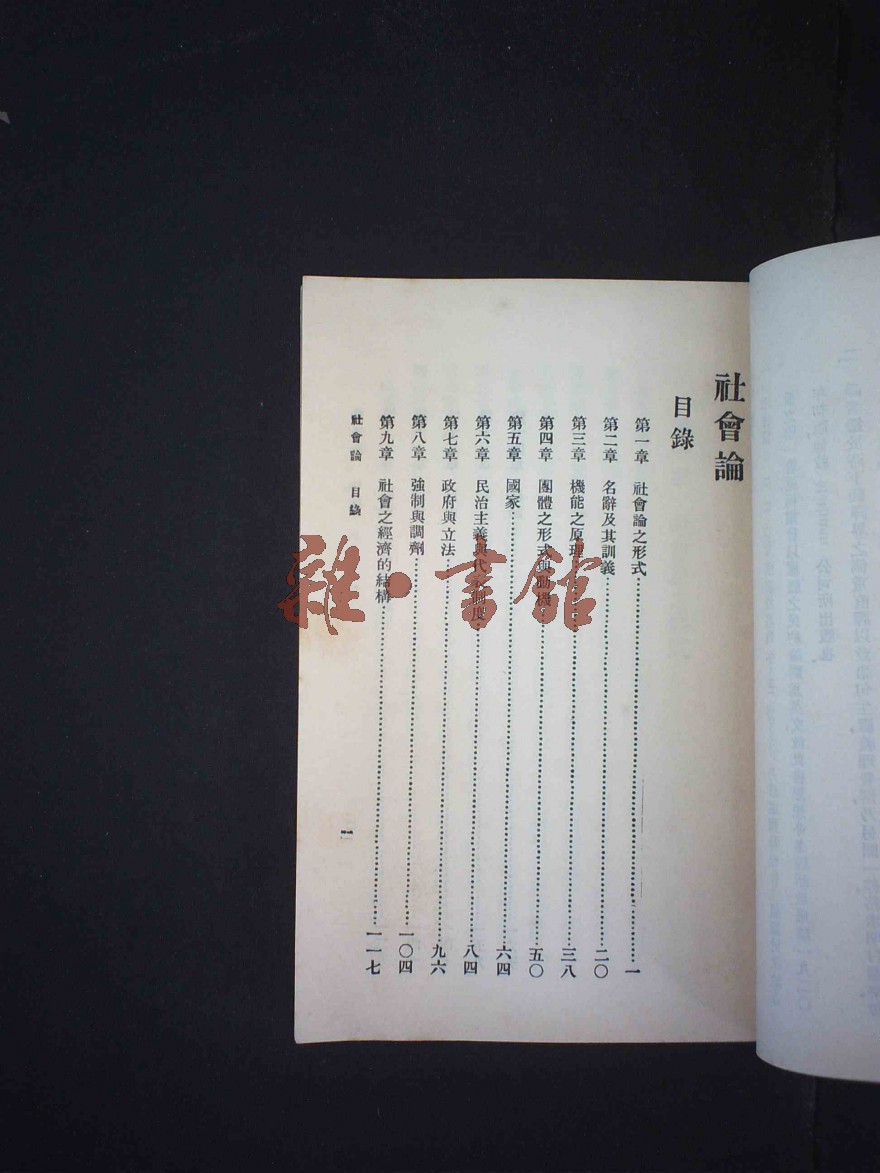 社會論
目錄
第一章 社會論之形式……一
第二章 名辭及其訓義……二〇
第三章 機能之原理……三八
第四章 團體之形式與動機……五〇
第五章 國家……六四
第六章 民治主義與代表制度……八四
第七章 政府與立法……九六
第八章 強制與調劑……一〇四
第九章 社會之經濟的結構……一一七
社會論 目錄
雜·書館